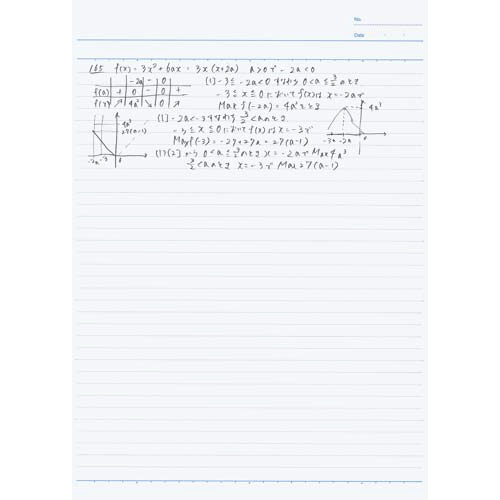 No.
Date
165 f(x) = 3x² + 6ax = 3x(x+2a) a>0で -2a<0
-2a - 0
f(x) + 0 - 0 +
f(x) ↗ 4a³ ↘ 0 ↗
[1] -3≦-2a<0 すなわち 0<a≦3/2 のとき
-3≦x≦0において f(x)は x=-2aで
Max f(-2a) = 4a³をとる
4a³
-3 -2a 0
[2] -2a<-3すなわち 3/2<aのとき
-3≦x≦0において f(x)は x=-3で
Max f(-3) = -27+27a = 27(a-1)
4a³
27(a-1)
-2a -3 0
[1][2]から 0<a≦3/2のとき x=-2aで Max 4a³
3/2<aのとき x=-3で Max 27(a-1)